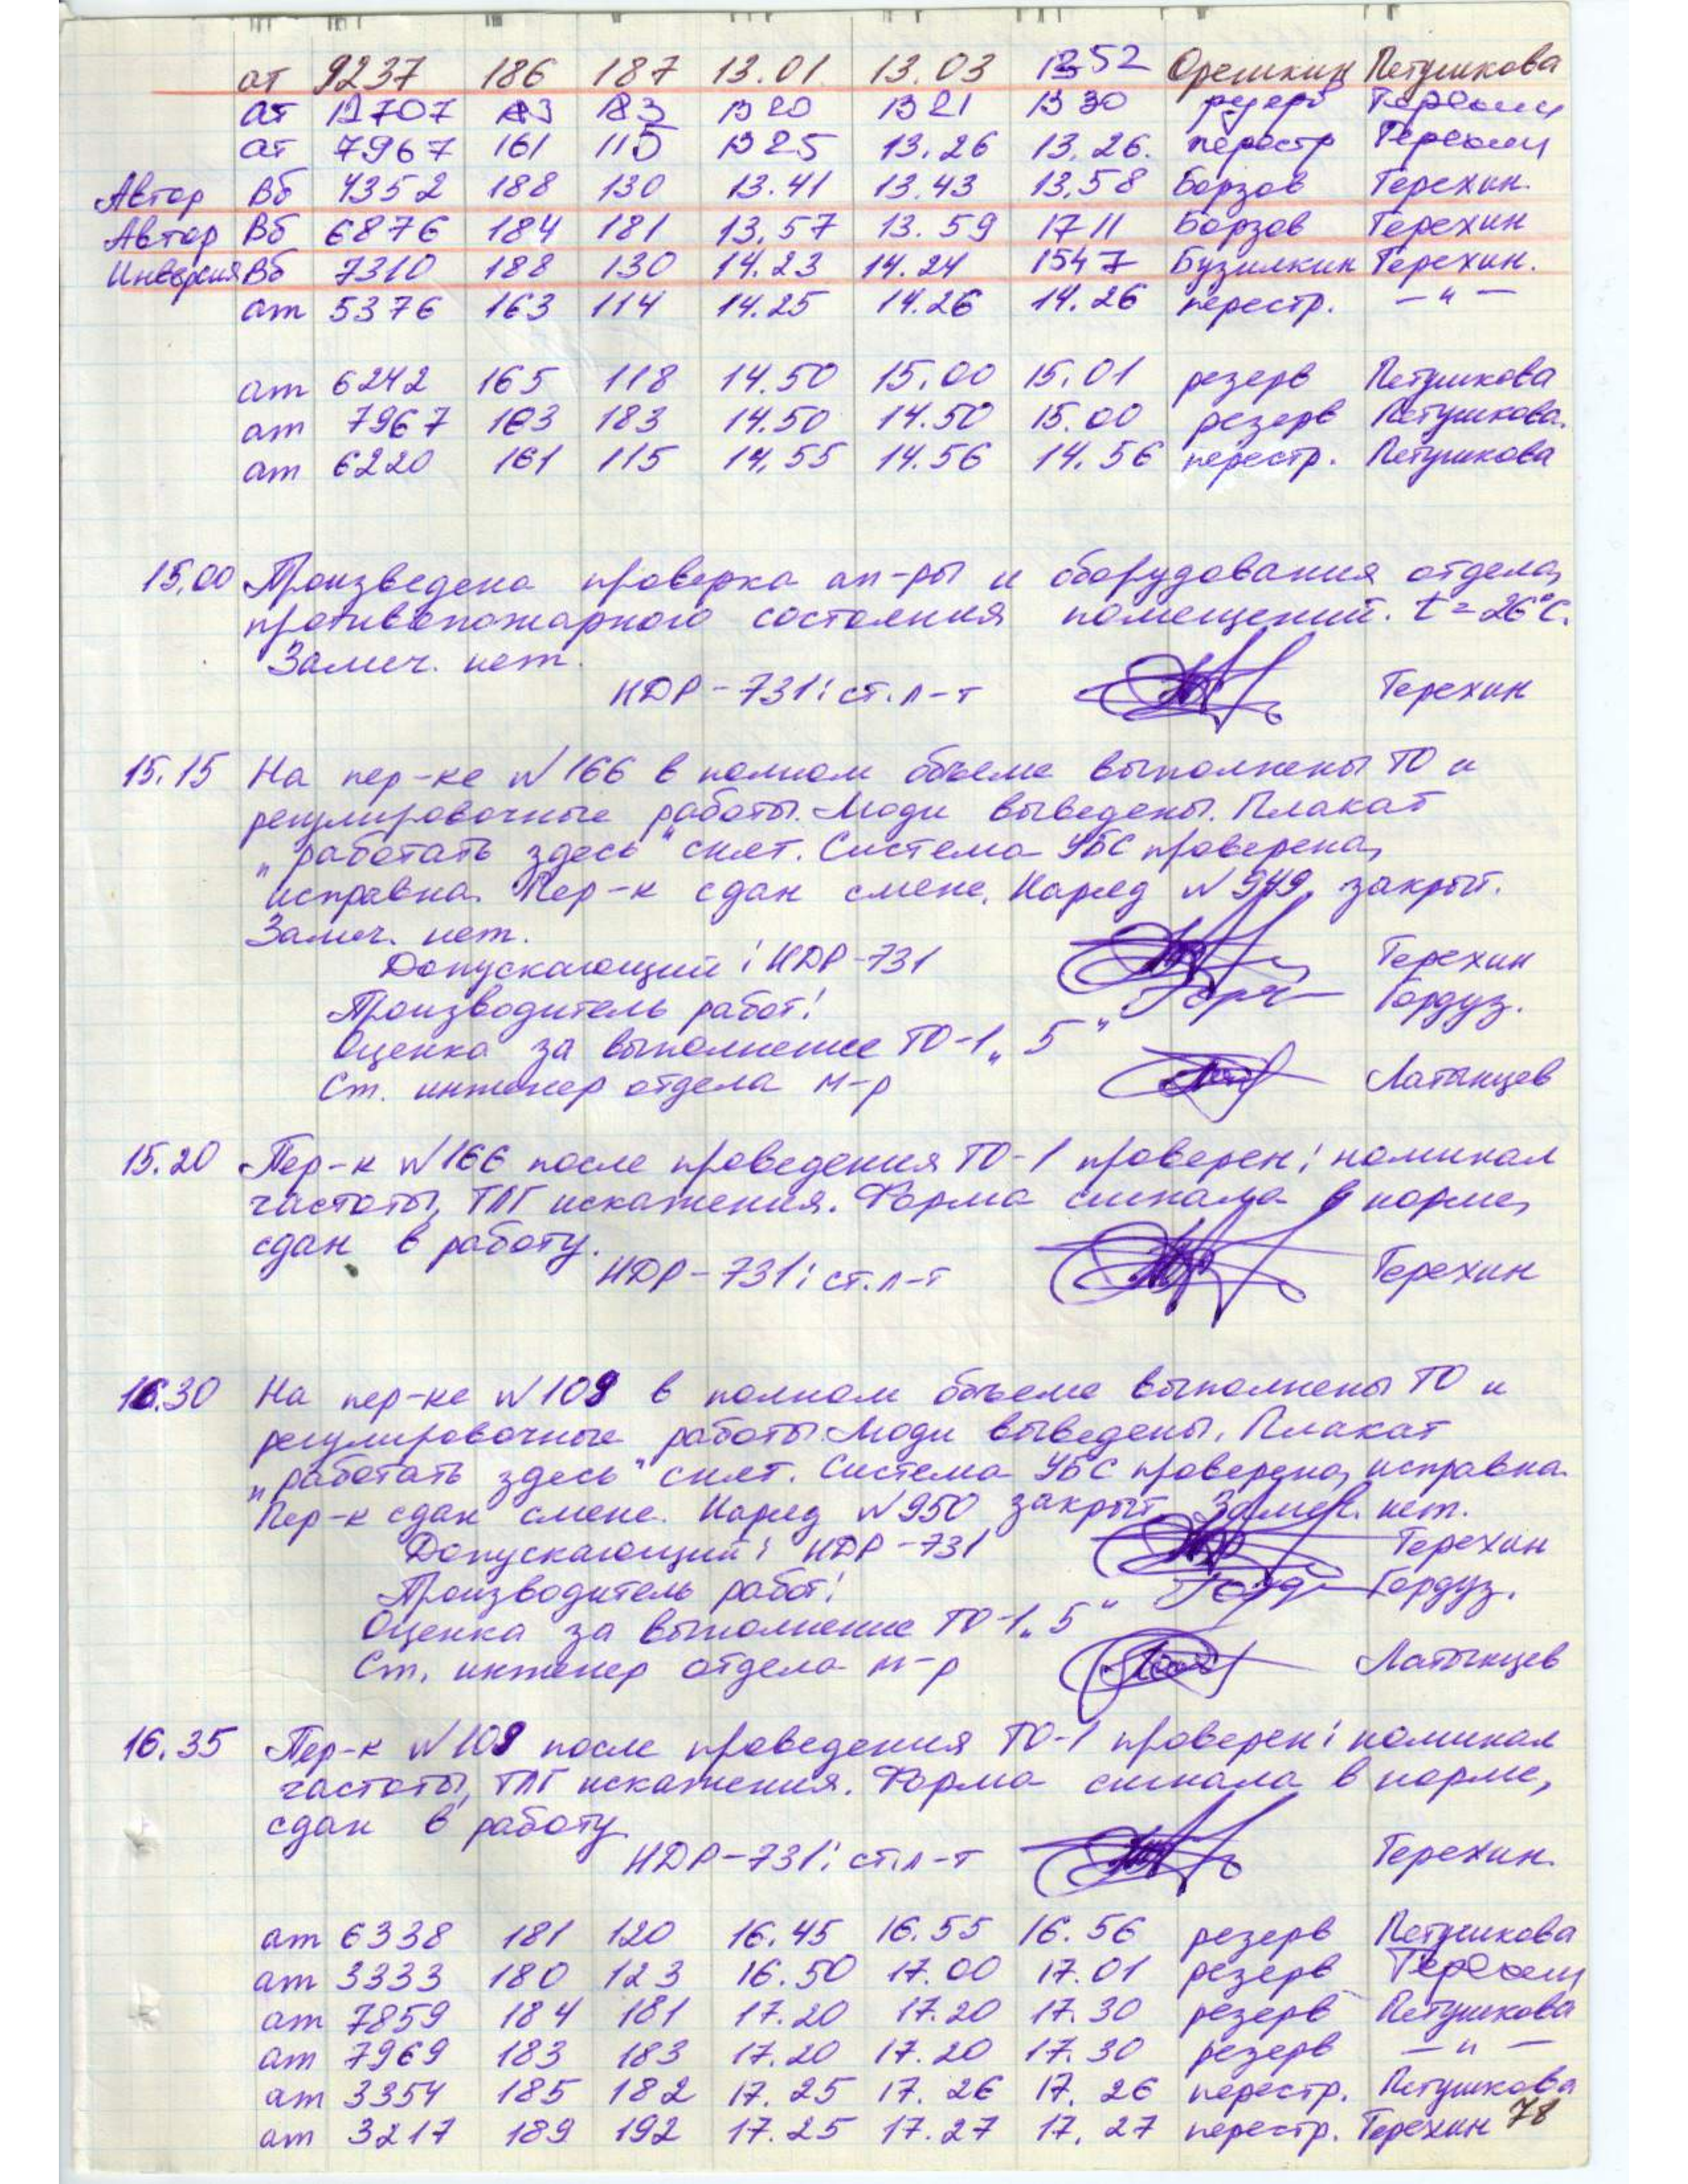 ат 9237 186 187 13.01 13.03 1352 Орешкин Петушкова
ат 12707 183 183 1320 1321 1330 резерв Терехин
ат 7967 161 115 1325 13.26 13.26. перестр Терехин
Автор Вб 4352 188 130 13.41 13.43 13.58 Борзов Терехин.
Автор Вб 6876 184 181 13.57 13.59 1711 Борзов Терехин
Инверсия Вб 7310 188 130 14.23 14.24 1547 Бузилкин Терехин.
ат 5376 163 114 14.25 14.26 14.26 перестр. — " —
ат 6242 165 118 14.50 15.00 15.01 резерв Петушкова
ат 7967 183 14.50 14.50 15.00 резерв Петушкова.
ат 6220 161 115 14.55 14.56 14.56 перестр. Петушкова
15.00 Произведена проверка ап-ры и оборудования отдела,
противопожарного состояния помещений. t = 26°C.
Замеч. нет.
НДР-731: ст. л-т Терехин
15.15 На пер-ке №166 в полном объеме выполнены ТО и
регулировочные работы. Люди выведены. Плакат
„работать здесь" снят. Система УБС проверена,
исправна. Пер-к сдан смене. Наряд №949 закрыт.
Замеч. нет.
Допускающий: НДР-731 Терехин
Производитель работ: Гордуз.
Оценка за выполнение ТО-1 „5"
Ст. инженер отдела м-р Латынцев
15.20 Пер-к №166 после проведения ТО-1 проверен: номинал
частоты, ТЛГ искажения. Форма сигнала в норме,
сдан в работу.
НДР-731: ст. л-т Терехин
16.30 На пер-ке №109 в полном объеме выполнены ТО и
регулировочные работы. Люди выведены. Плакат
„работать здесь" снят. Система УБС проверена, исправна.
Пер-к сдан смене. Наряд №950 закрыт. Замеч. нет.
Допускающий: НДР-731 Терехин
Производитель работ: Гордуз.
Оценка за выполнение ТО-1 „5"
Ст. инженер отдела м-р Латынцев
16.35 Пер-к №109 после проведения ТО-1 проверен: номинал
частоты, ТЛГ искажения. Форма сигнала в норме,
сдан в работу
НДР-731: ст. л-т Терехин.
ат 6338 181 120 16.45 16.55 16.56 резерв Петушкова
ат 3333 180 123 16.50 17.00 17.01 резерв Терехин
ат 7859 184 181 17.20 17.20 17.30 резерв Петушкова
ат 7969 183 183 17.20 17.20 17.30 резерв — " —
ат 3354 185 182 17.25 17.26 17.26 перестр. Петушкова
ат 3217 189 192 17.25 17.27 17.27 перестр. Терехин 78